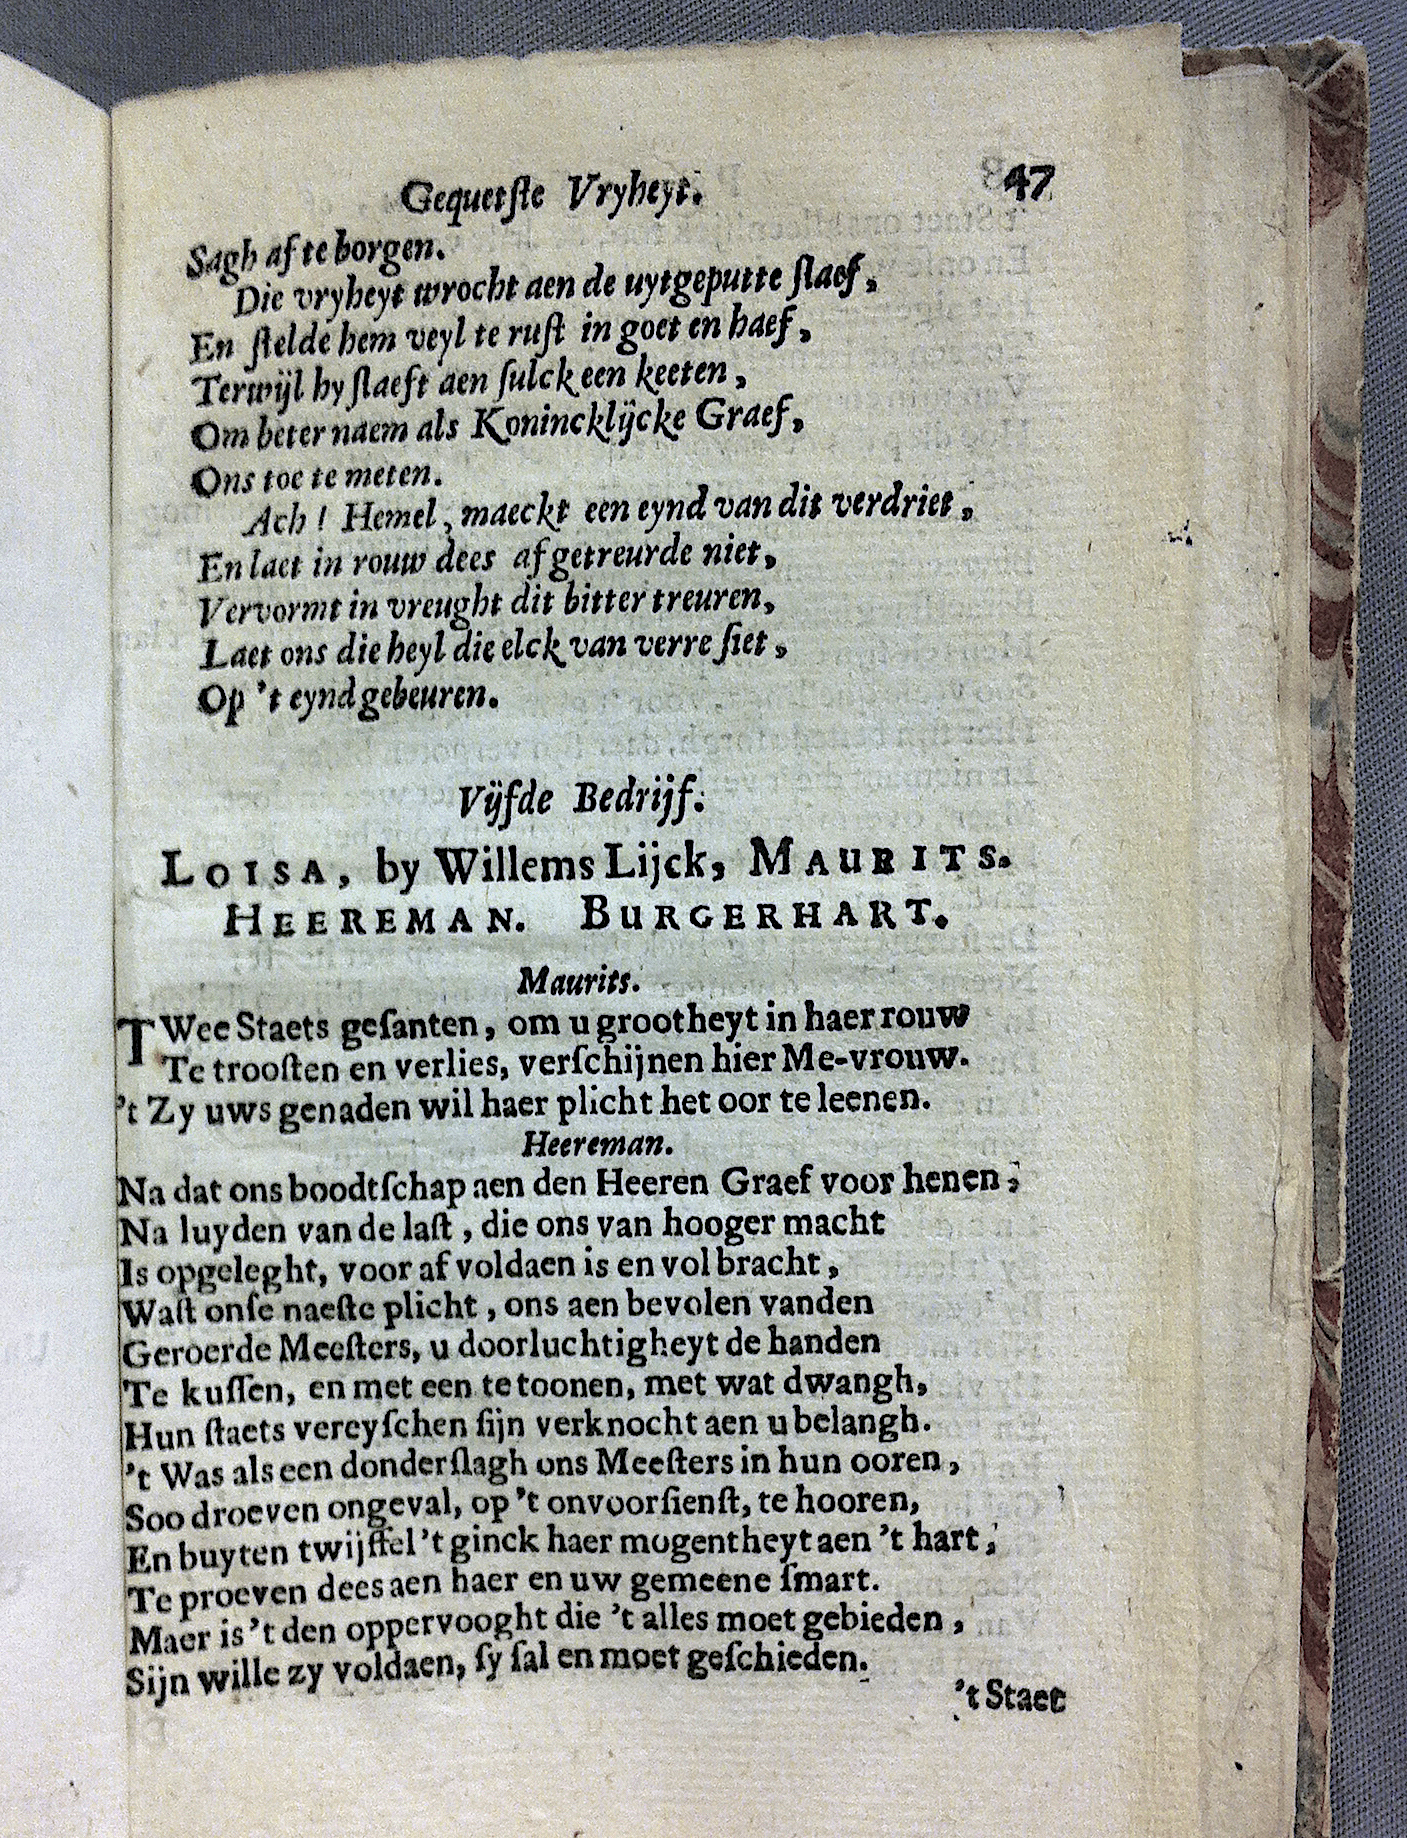 Gequetſte Vryheyt. 47
Sagh af te borgen.
Die vryheyt wrocht aen de uytgeputte ſlaef,
En ſtelde hem veyl te ruſt in goet en haef,
Terwijl hy ſlaeft aen ſulck een keeten,
Om beter naem als Konincklijcke Graef,
Ons toe te meten.
Ach! Hemel, maeckt een eynd van dit verdriet,
En laet in rouw dees afgetreurde niet,
Vervormt in vreught dit bitter treuren,
Laet ons die heyl die elck van verre ſiet,
Op 't eynd gebeuren.
Vijfde Bedrijf.
LOISA, by Willems Lijck, MAURITS.
HEEREMAN. BURGERHART.
Maurits.
TWee Staets geſanten, om u grootheyt in haer rouw
Te trooſten en verlies, verſchijnen hier Me-vrouw.
't Zy uws genaden wil haer plicht het oor te leenen.
Heereman.
Na dat ons boodtſchap aen den Heeren Graef voor henen,
Na luyden van de laſt, die ons van hooger macht
Is opgeleght, voor af voldaen is en volbracht,
Waſt onſe naeſte plicht, ons aen bevolen vanden
Geroerde Meeſters, u doorluchtigheyt de handen
Te kuſſen, en met een te toonen, met wat dwangh,
Hun ſtaets vereyſchen ſijn verknocht aen u belangh.
't Was als een donderſlagh ons Meeſters in hun ooren,
Soo droeven ongeval, op 't onvoorſienſt, te hooren,
En buyten twijffel 't ginck haer mogentheyt aen 't hart,
Te proeven dees aen haer en uw gemeene ſmart.
Maer is 't den oppervooght die 't alles moet gebieden,
Sijn wille zy voldaen, ſy ſal en moet geſchieden.
't Staet